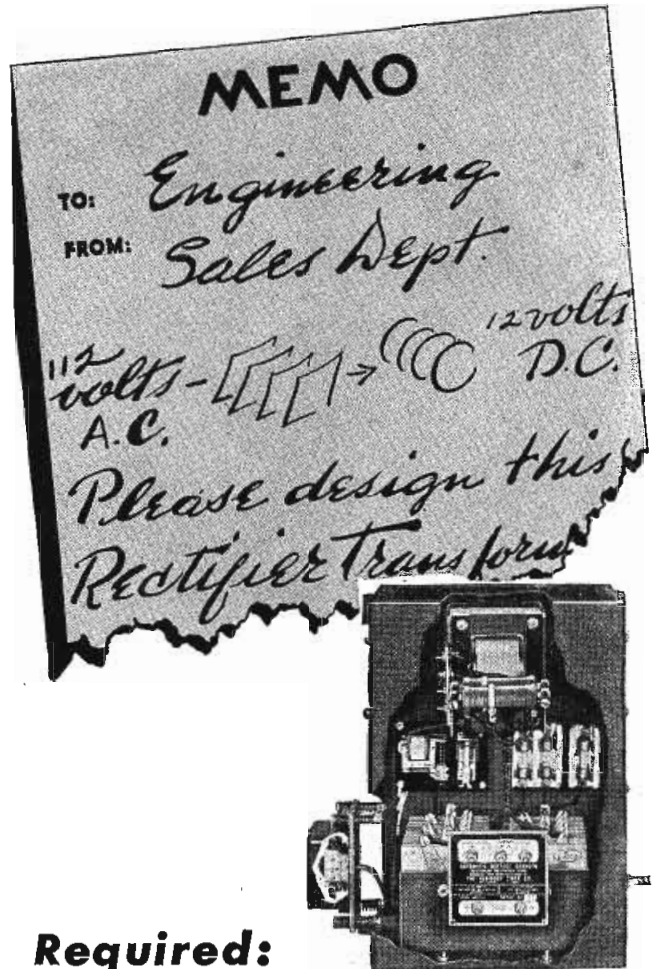 MEMO
TO: Engineering
FROM: Sales Dept.
112 volts A.C. → 12 volts D.C.
Please design this
Rectifier Transform
Required: